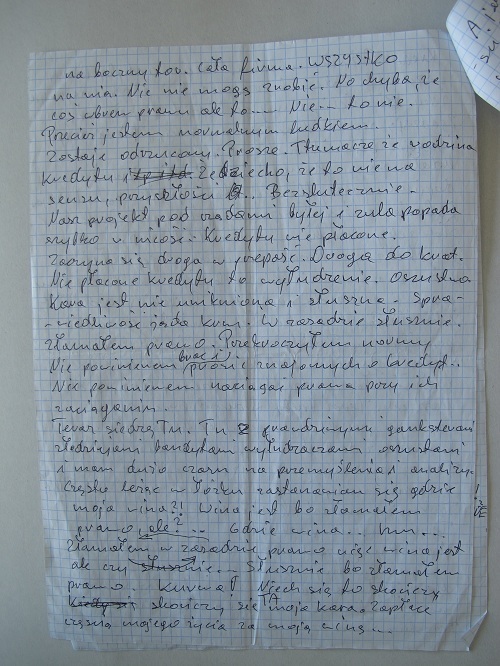 na boczny tor. Cała firma. WSZYSTKO
na nia. Nic nie mogą zrobić. No chyba, że
coś wbrew prawu ale to.... Nie.. to nie.
Przecież jestem normalnym ludkiem.
Zostaję odrzucony. Proszę. Tłumaczę że rodzina
kredyty i że dziecko, że to nie ma
sensu, przyszłości.. Bezskutecznie.
Nasz projekt pod rządami byłej i popada
szybko w nicość. Kredyty nie płacone.
Zaczyna się droga w przepaść. Droga do krat.
Nie płacone kredyty to wyłudzenie. Oszustwo
Kara jest nie unikniona i słuszna. Spra-
-wiedliwość kurw. W zasadzie słusznie.
Złamałem prawo. Przekroczyłem normy
Nie powinienem brać i prosić znajomych o kredyt..
Nie powinienem naciągać prawa przy ich
zaciąganiu.
Teraz siedzę Tu. Tu z prawdziwymi gangsterami
złodziejami bandytami wyłudzaczami oszustami
i mam dużo czasu na przemyślenia i analizy.
Często leżąc w łóżku zastanawiam się gdzie !
moja wina?! Wina jest bo złamałem że
prawo, ale?... Gdzie wina.. hm...
Złamałem w zasadzie prawo więc wina jest
ale czy słusznie. Słusznie bo złamałem
prawo. Kurwa! Niech się to skończy
skończy się ta moja kara. Zapłacę
częścią mojego życia za moją winę...
A je